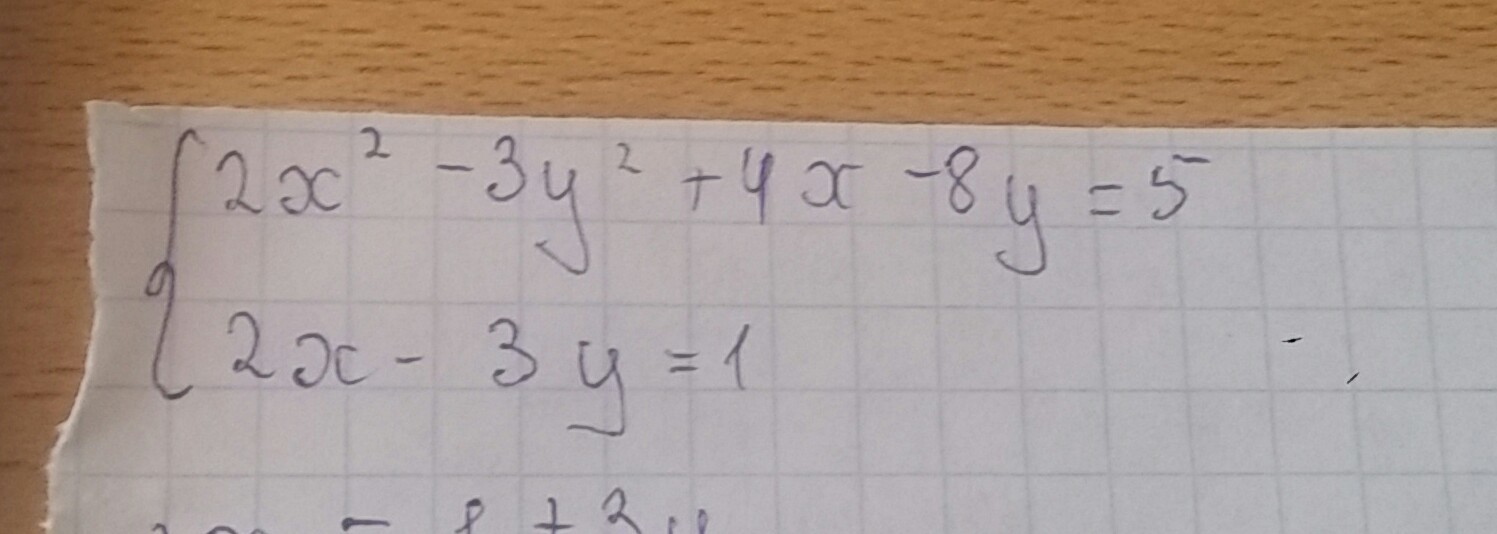 2x² - 3y² + 4x - 8y = 5
2x - 3y = 1